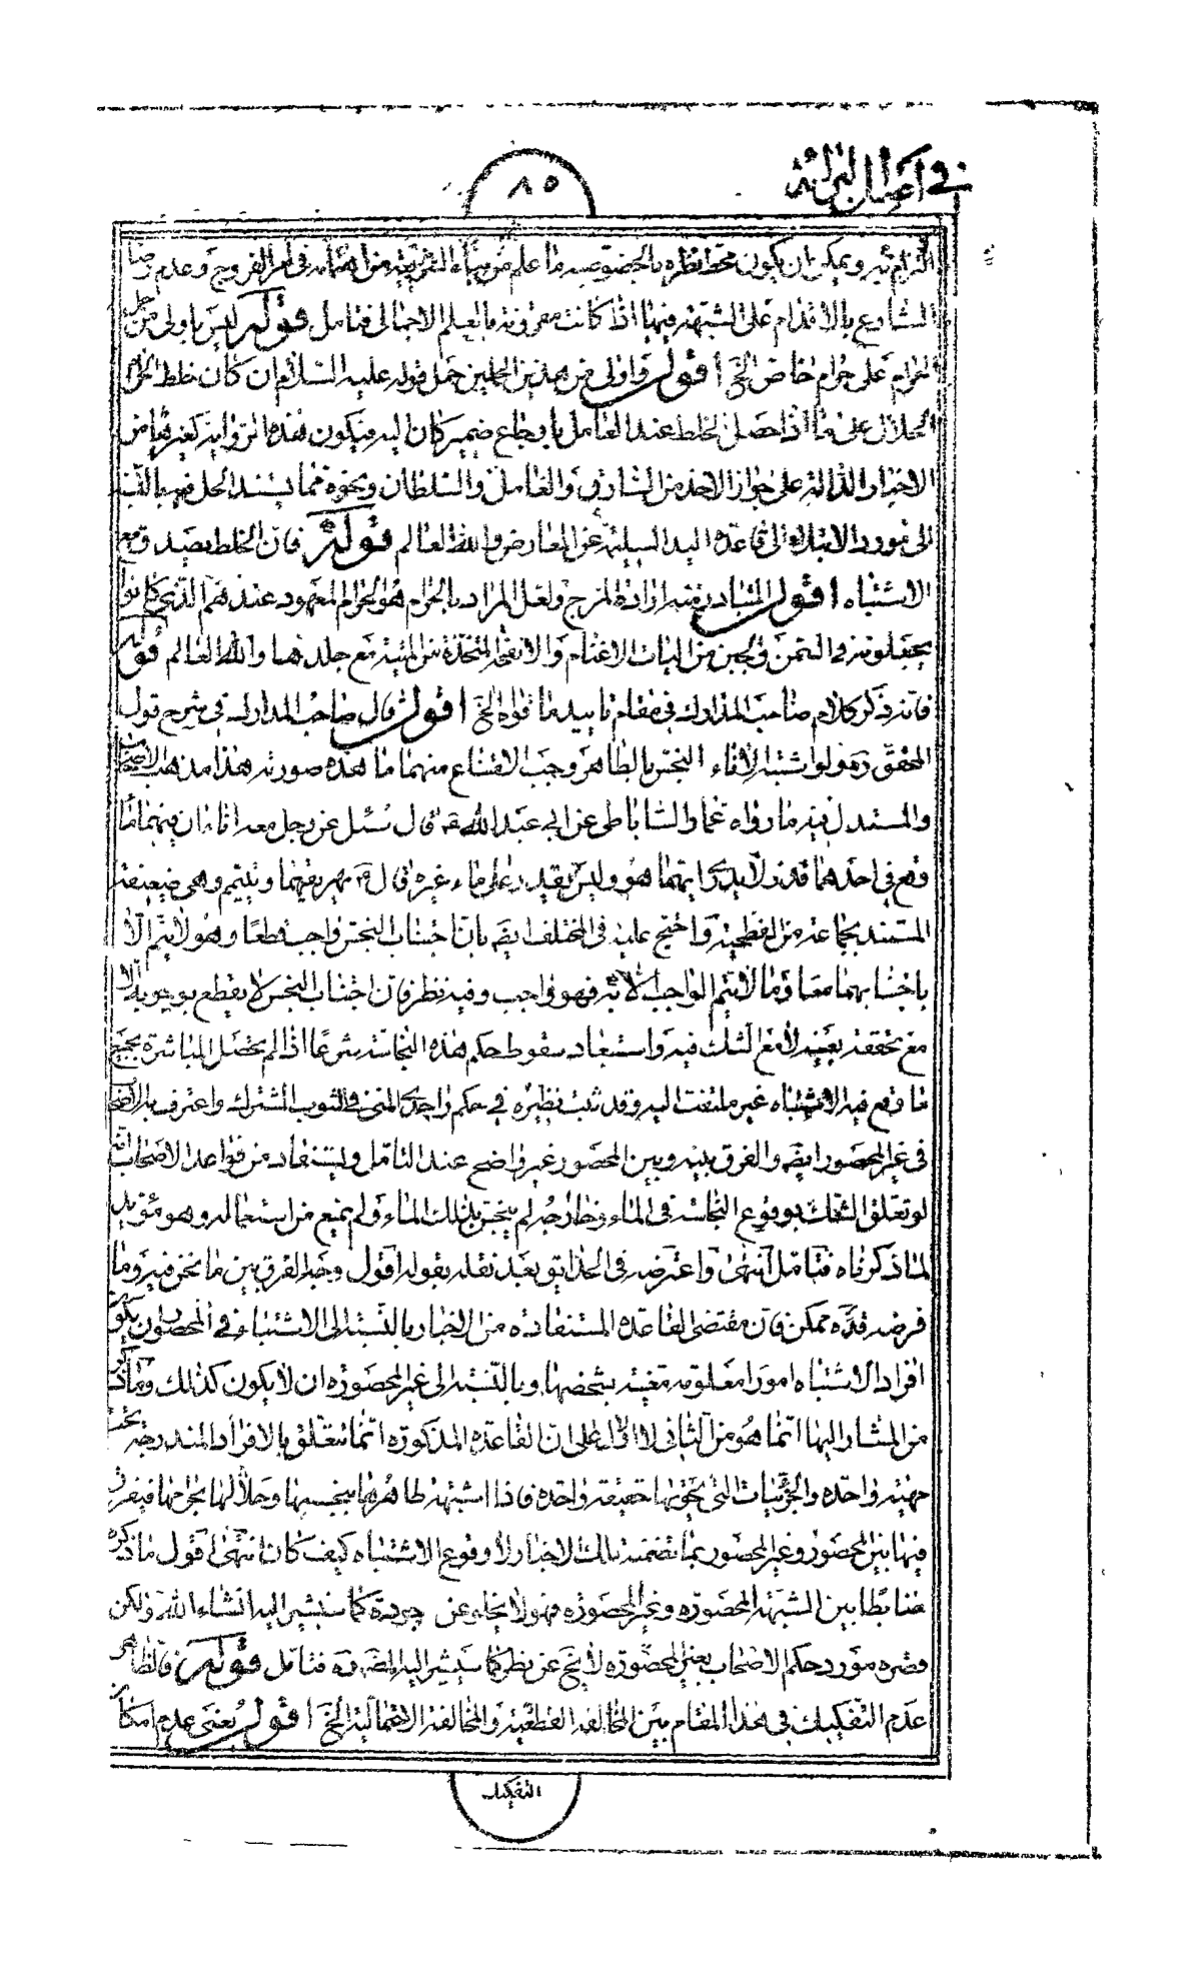 في اصل البرائة
٨٥
الرام ثم ويمكن ان يكون محط نظره بالخصوصيه ما علم من بناء الشريعة من اهتمامه في امر الفروج وعدم رضا
الشارع بالاقدام على الشبهة فيها اذا كانت مقرونة بالعلم الاجمالى فتامل قوله ليس باولى من حمل
الحرام على حرام خاص الخ اقول واولى من هذين الحملين حمل قوله عليه السلام ان كان خلط الحرام
الحلال على ما اذا حصل الخلط عند العامل بارجاع ضمير كان اليه فيكون هذه الرواية كغيرها من
الاخبار الدالة على جواز الاخذ من السارق والعامل والسلطان ونحوه مما يستند الحل فيه بالنسبة
الى مورد الابتلاء الى قاعدة اليد السليمة عن المعارض والله العالم قوله فان الخلط يصدق مع
الاشتباه اقول المتبادر منه ارادة المزج ولعل المراد بالحرام هو الحرام المعهود عندهم الذي كانوا
يجعلونه في السمن والجبن من اليات الاغنام والانفحة المتخذة من الميتة مع جلدها والله العالم قوله
فانه ذكر كلام صاحب المدارك في مقام تاييد ما قواه الخ اقول قال صاحب المدارك في شرح قول
المحقق ره ولو اشتبه الاناء النجس بالطاهر وجب الامتناع منهما ما هذه صورته هذا مذهب الاصحاب
والمستند فيه ما رواه عمار الساباطى عن ابي عبد الله ع قال سئل عن رجل معه اناءان فيهما ماء
وقع في احدهما قذر لا يدرى ايهما هو وليس يقدر على ماء غيره قال ع يهريقهما ويتيمم وهي ضعيفة
المستند بجماعة من الفطحية واحتج عليه في المختلف ايضا بان اجتناب النجس واجب قطعا وهو لا يتم الا
باجتنابهما معا وما لا يتم الواجب الا به فهو واجب وفيه نظر فان اجتناب النجس لا يقطع بوجوبه الا
مع تحققه بعينه لا مع الشك فيه واستبعاد سقوط حكم هذه النجاسة شرعا اذا لم يحصل المباشرة بجميع
ما وقع فيه الاشتباه غير ملتفت اليه وقد ثبت نظيره في حكم واجدي المني في الثوب المشترك واعترف به الاصحاب
في غير المحصور ايضا والفرق بينه وبين المحصور غير واضح عند التامل ويستفاد من قواعد الاصحاب انه
لو تعلق الشك بوقوع النجاسة في الماء وخارجه لم ينجس بذلك الماء ولم يمنع من استعماله وهو مؤيد
لما ذكرناه فتامل انتهى واعترضه في الحدائق بعد نقله بقوله اقول وجه الفرق بين ما نحن فيه وما
فرضه قده ممكن فان مقتضى القاعدة المستفادة من الاخبار بالنسبة الى الاشتباه في المحصور ان يكون
افراد الاشتباه امورا معلومة معينة بشخصها وبالنسبة الى غير المحصورة ان لا يكون كذلك وما ذكره
من المشار اليها انما هو من الثاني لا الاول على ان القاعدة المذكورة انما تتعلق بالافراد المندرجة تحت
مهية واحدة والجزئيات التى تحويها حقيقة واحدة فاذا اشتبه طاهرها بنجسها وحلالها بحرامها فيفرق
فيها بين المحصور وغير المحصور بما تضمنته تلك الاخبار لا وقوع الاشتباه كيف كان انتهى اقول ما ذكره
ضابطا بين الشبهة المحصورة وغير المحصورة فهو لا يخلو عن جودة كما سنشير اليه انشاء الله ولكن
قصره مورد حكم الاصحاب بغير المحصورة لا يخ عن نظر كما سيشير اليه المصنف ره فتامل قوله فالظاهر
عدم التفكيك في هذا المقام بين المخالفة القطعية والمخالفة الاحتمالية الخ اقول يعنى عدم امكان
التفكيك